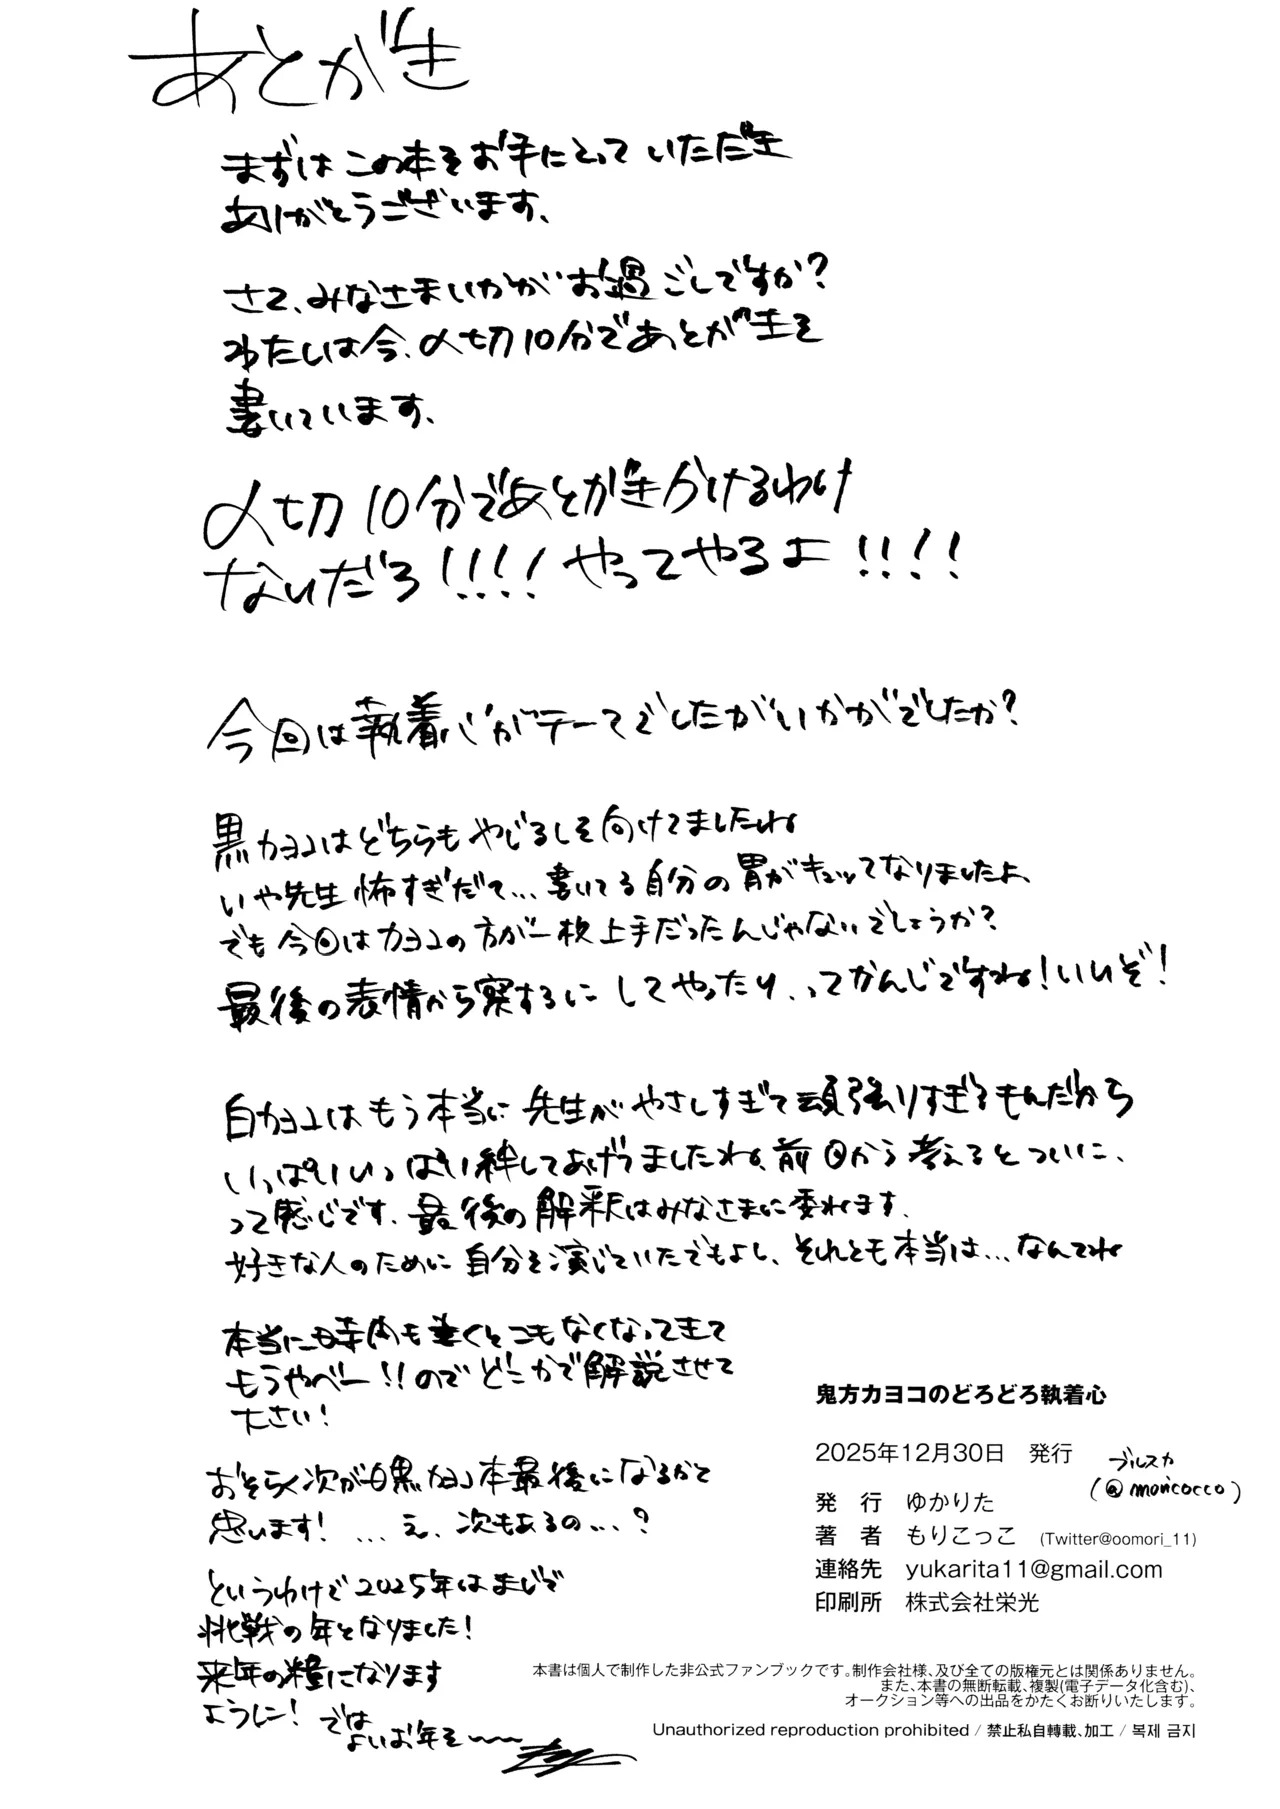 あとがき
まずは この本を お手にとって いただき
ありがとうございます、
さて、みなさまいかがお過ごしですか?
わたしは今、〆切10分であとがきを
書いています、
〆切10分であとがきかけるわけ
ないだろ!!!! やってやるよ!!!!
今回は執着心がテーマでしたがいかがでしたか?
黒カヨコはどちらもやじるしを向けてましたね
いや先生怖すぎだて…書いてる自分の胃がキュッてなりましたよ、
でも今回はカヨコの方が一枚上手だったんじゃないでしょうか?
最後の表情から察するに してやったり、ってかんじですね!いいぞ!
白カヨコはもう本当に先生がやさしすぎて頑張りすぎるもんだから
いっぱいいっぱい絆してあげうましたね、前回から考えるとついに、
って感じです、最後の解釈はみなさまに委ねます、
好きな人のために自分を演じていたでもよし、それとも本当は…なんてね
本当に時間も書くとこもなくなってきて
もうやべー!!のでどこかで解説させて
下さい!
おそらく次が白黒カヨコ本最後になるかと
思います! …え、次もあるの…?
というわけで2025年はまじで
挑戦の年となりました!
来年の糧になります
ように! では
よいお年を〜〜
鬼方カヨコのどろどろ執着心
2025年12月30日 発行
ブルスカ
(@moricocco)
発 行 ゆかりた
著 者 もりこっこ (Twitter@oomori_11)
連絡先 yukarita11@gmail.com
印刷所 株式会社栄光
本書は個人で制作した非公式ファンブックです。制作会社様、及び全ての版権元とは関係ありません。
また、本書の無断転載、複製(電子データ化含む)、
オークション等への出品をかたくお断りいたします。
Unauthorized reproduction prohibited / 禁止私自轉載、加工 / 복제 금지